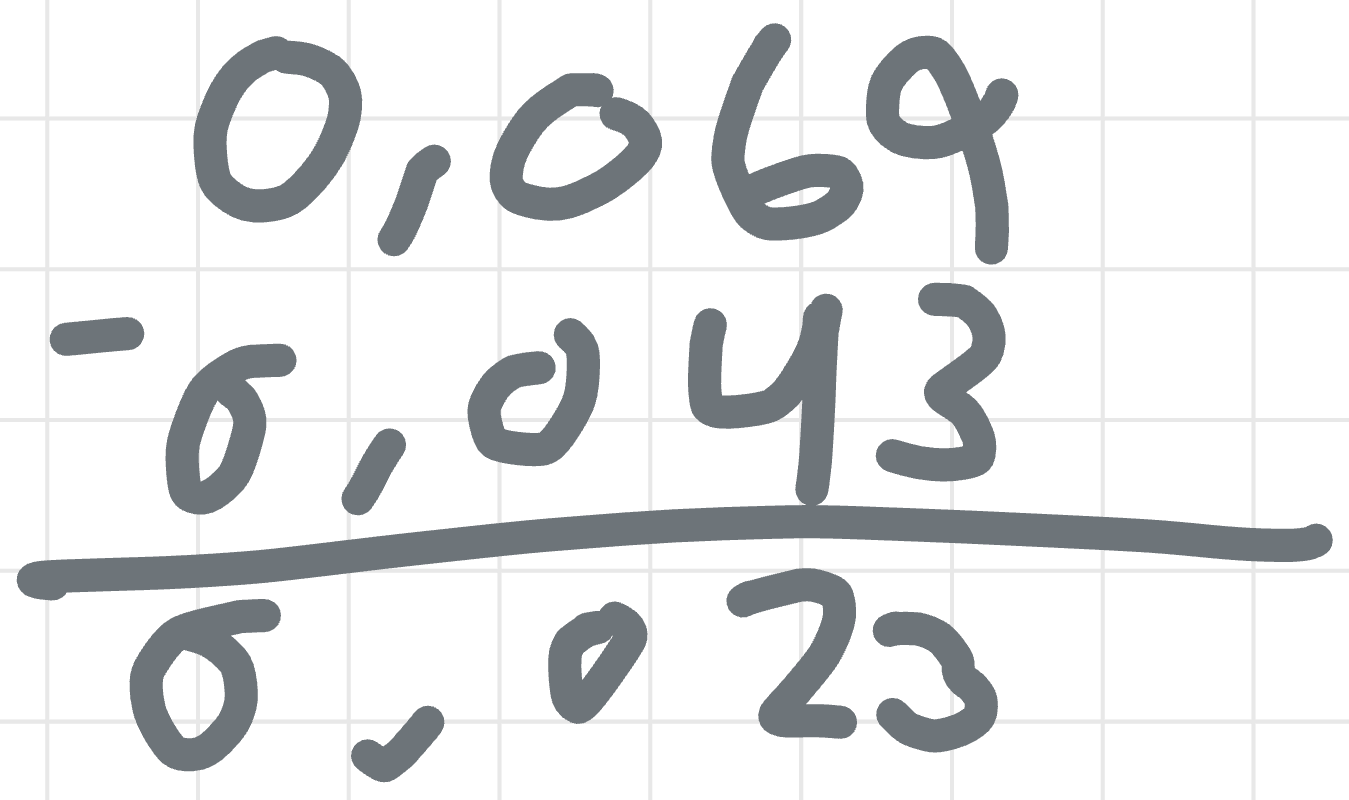 0,069
- 0,043
0,023